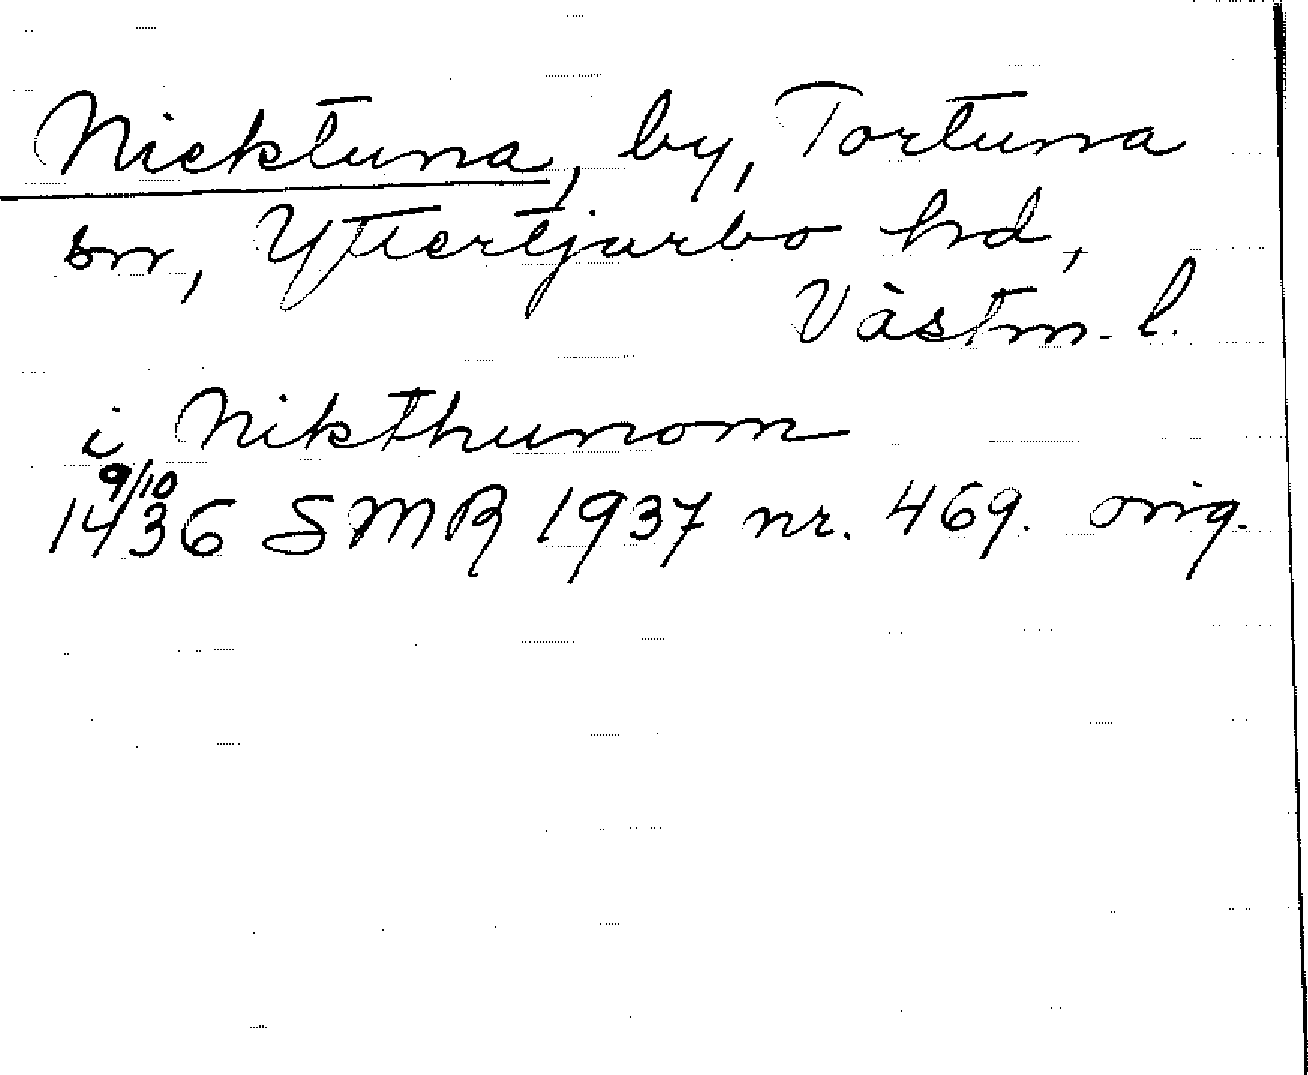 Nicktuna, by, Tortuna
sn, Yttertjurbo hd,
Västm. l.
i Nikthunom
9/10
1436 SMR 1937 nr. 469. orig.